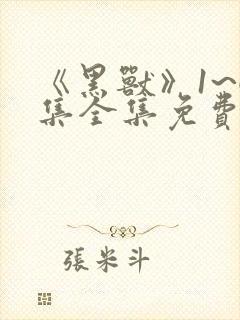 《黑獸》1~
集全集免費
張米斗